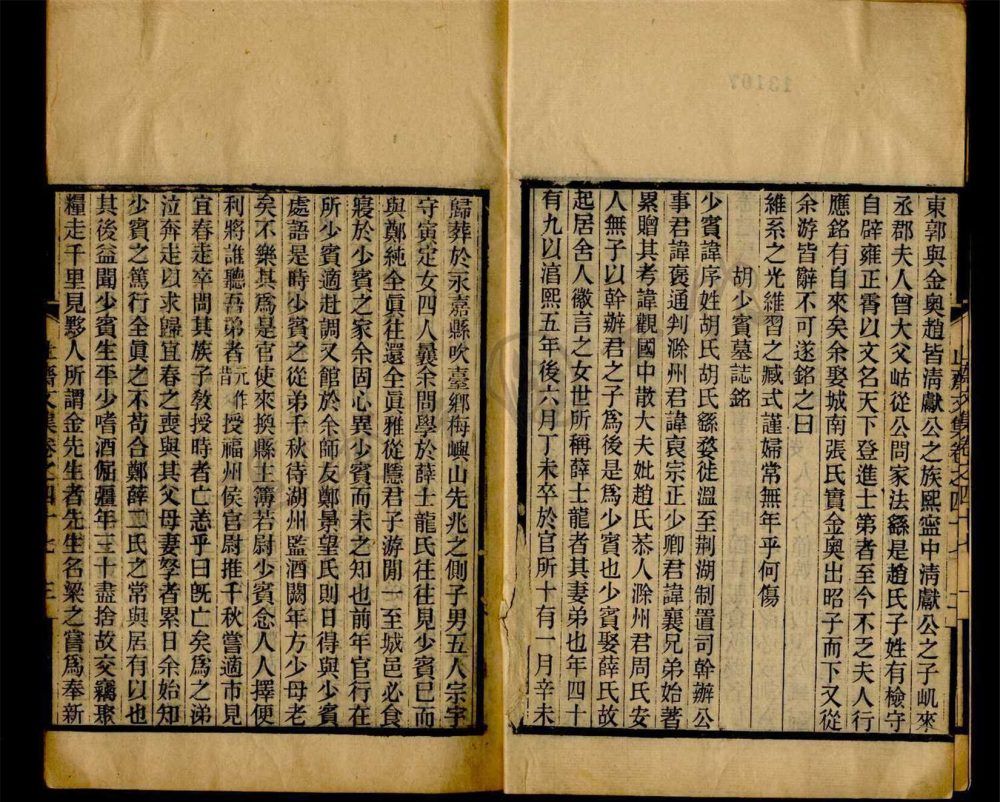 東郭與金奧趙皆清獻公之族熙寧中清獻公之子㞦來
丞郡夫人曾大父岵從公問家法繇是趙氏子姓有檢守
自辟雍正霄以文名天下登進士弟者至今不乏夫人行
應銘有自來矣余娶城南張氏實金奧出昭子而下又從
余游皆辭不可遂銘之曰
維系之光維習之臧式謹婦常無年乎何傷
胡少賓墓誌銘
少賓諱序姓胡氏胡氏繇婺徙溫至荆湖制置司幹辦公
事君諱襃通判滁州君諱衰宗正少卿君諱襄兄弟始著
累贈其考諱觀國中散大夫妣趙氏恭人滁州君周氏安
人無子以幹辦君之子爲後是爲少賓也少賓娶薛氏故
起居舍人徽言之女世所稱薛士龍者其妻弟也年四十
有九以淳熙五年後六月丁未卒於官所十有一月辛未
止齋文集卷之四十七
歸葬於永嘉縣吹臺鄉梅嶼山先兆之側子男五人宗宇
守寅定女四人曩余問學於薛士龍氏往往見少賓已而
與鄭純全眞往還全眞雅從隱君子游閒一至城邑必食
寢於少賓之家余固心異少賓而未之知也前年官行在
所少賓適赴調又館於余師友鄭景望氏則日得與少賓
處語是時少賓之從弟千秋待湖州監酒闕年方少母老
矣不樂其爲是官使來換縣主簿若尉少賓念人人擇便
利將誰聽吾弟者元作昔授福州侯官尉推千秋嘗適市見
宜春走卒問其族子教授時者亡恙乎曰旣亡矣爲之涕
泣奔走以求歸宜春之喪與其父母妻孥者累日余始知
少賓之篤行全眞之不苟合鄭薛二氏之常與居有以也
其後益聞少賓生平少嗜酒倔彊年三十盡捨故交竊聚
糧走千里見黟人所謂金先生者先生名粱之嘗爲奉新
止齋文集卷之四十七
三
13107